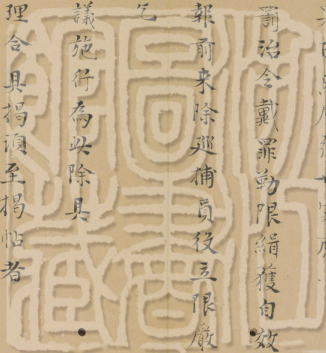 罰治令戴罪勒限緝獲自效
報前来除廵捕員役立限嚴
乞
議施行為此除具
理合具揭須至揭帖者